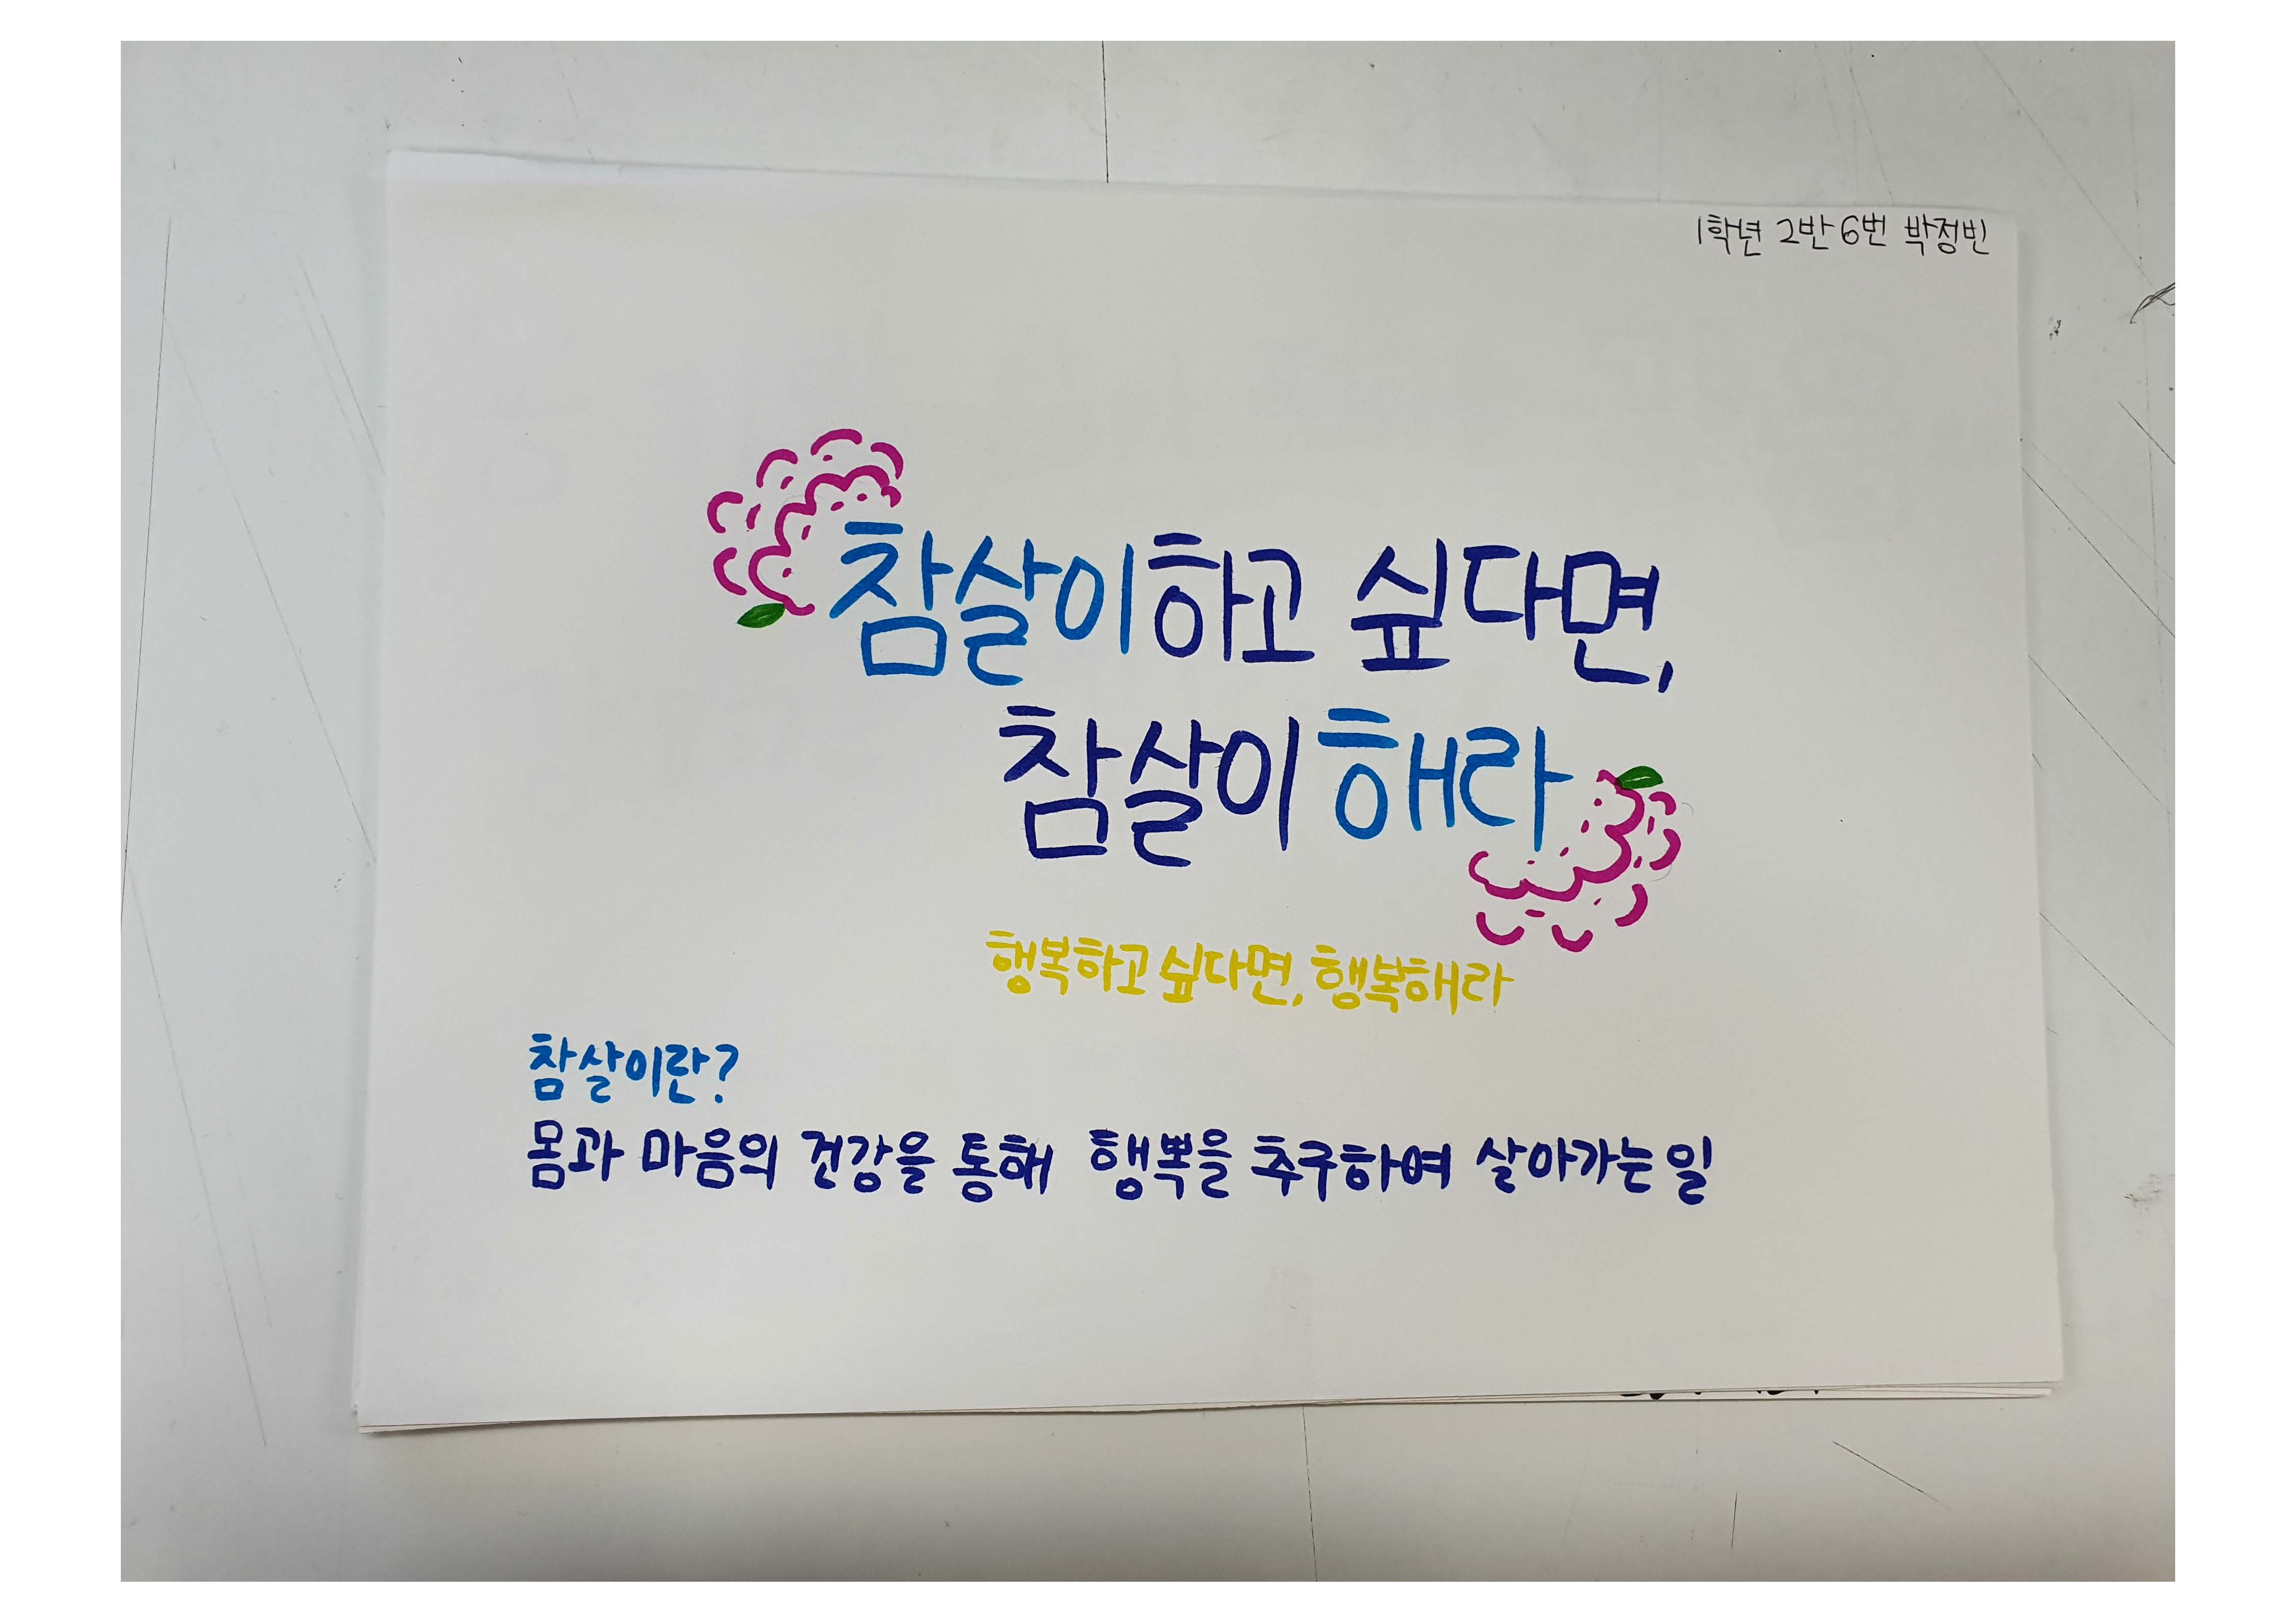 1학년 2반 6번 박정빈
참살이하고 싶다면,
참살이 해라
행복하고 싶다면, 행복해라
참살이란?
몸과 마음의 건강을 통해 행뽁을 추구하여 살아가는 일